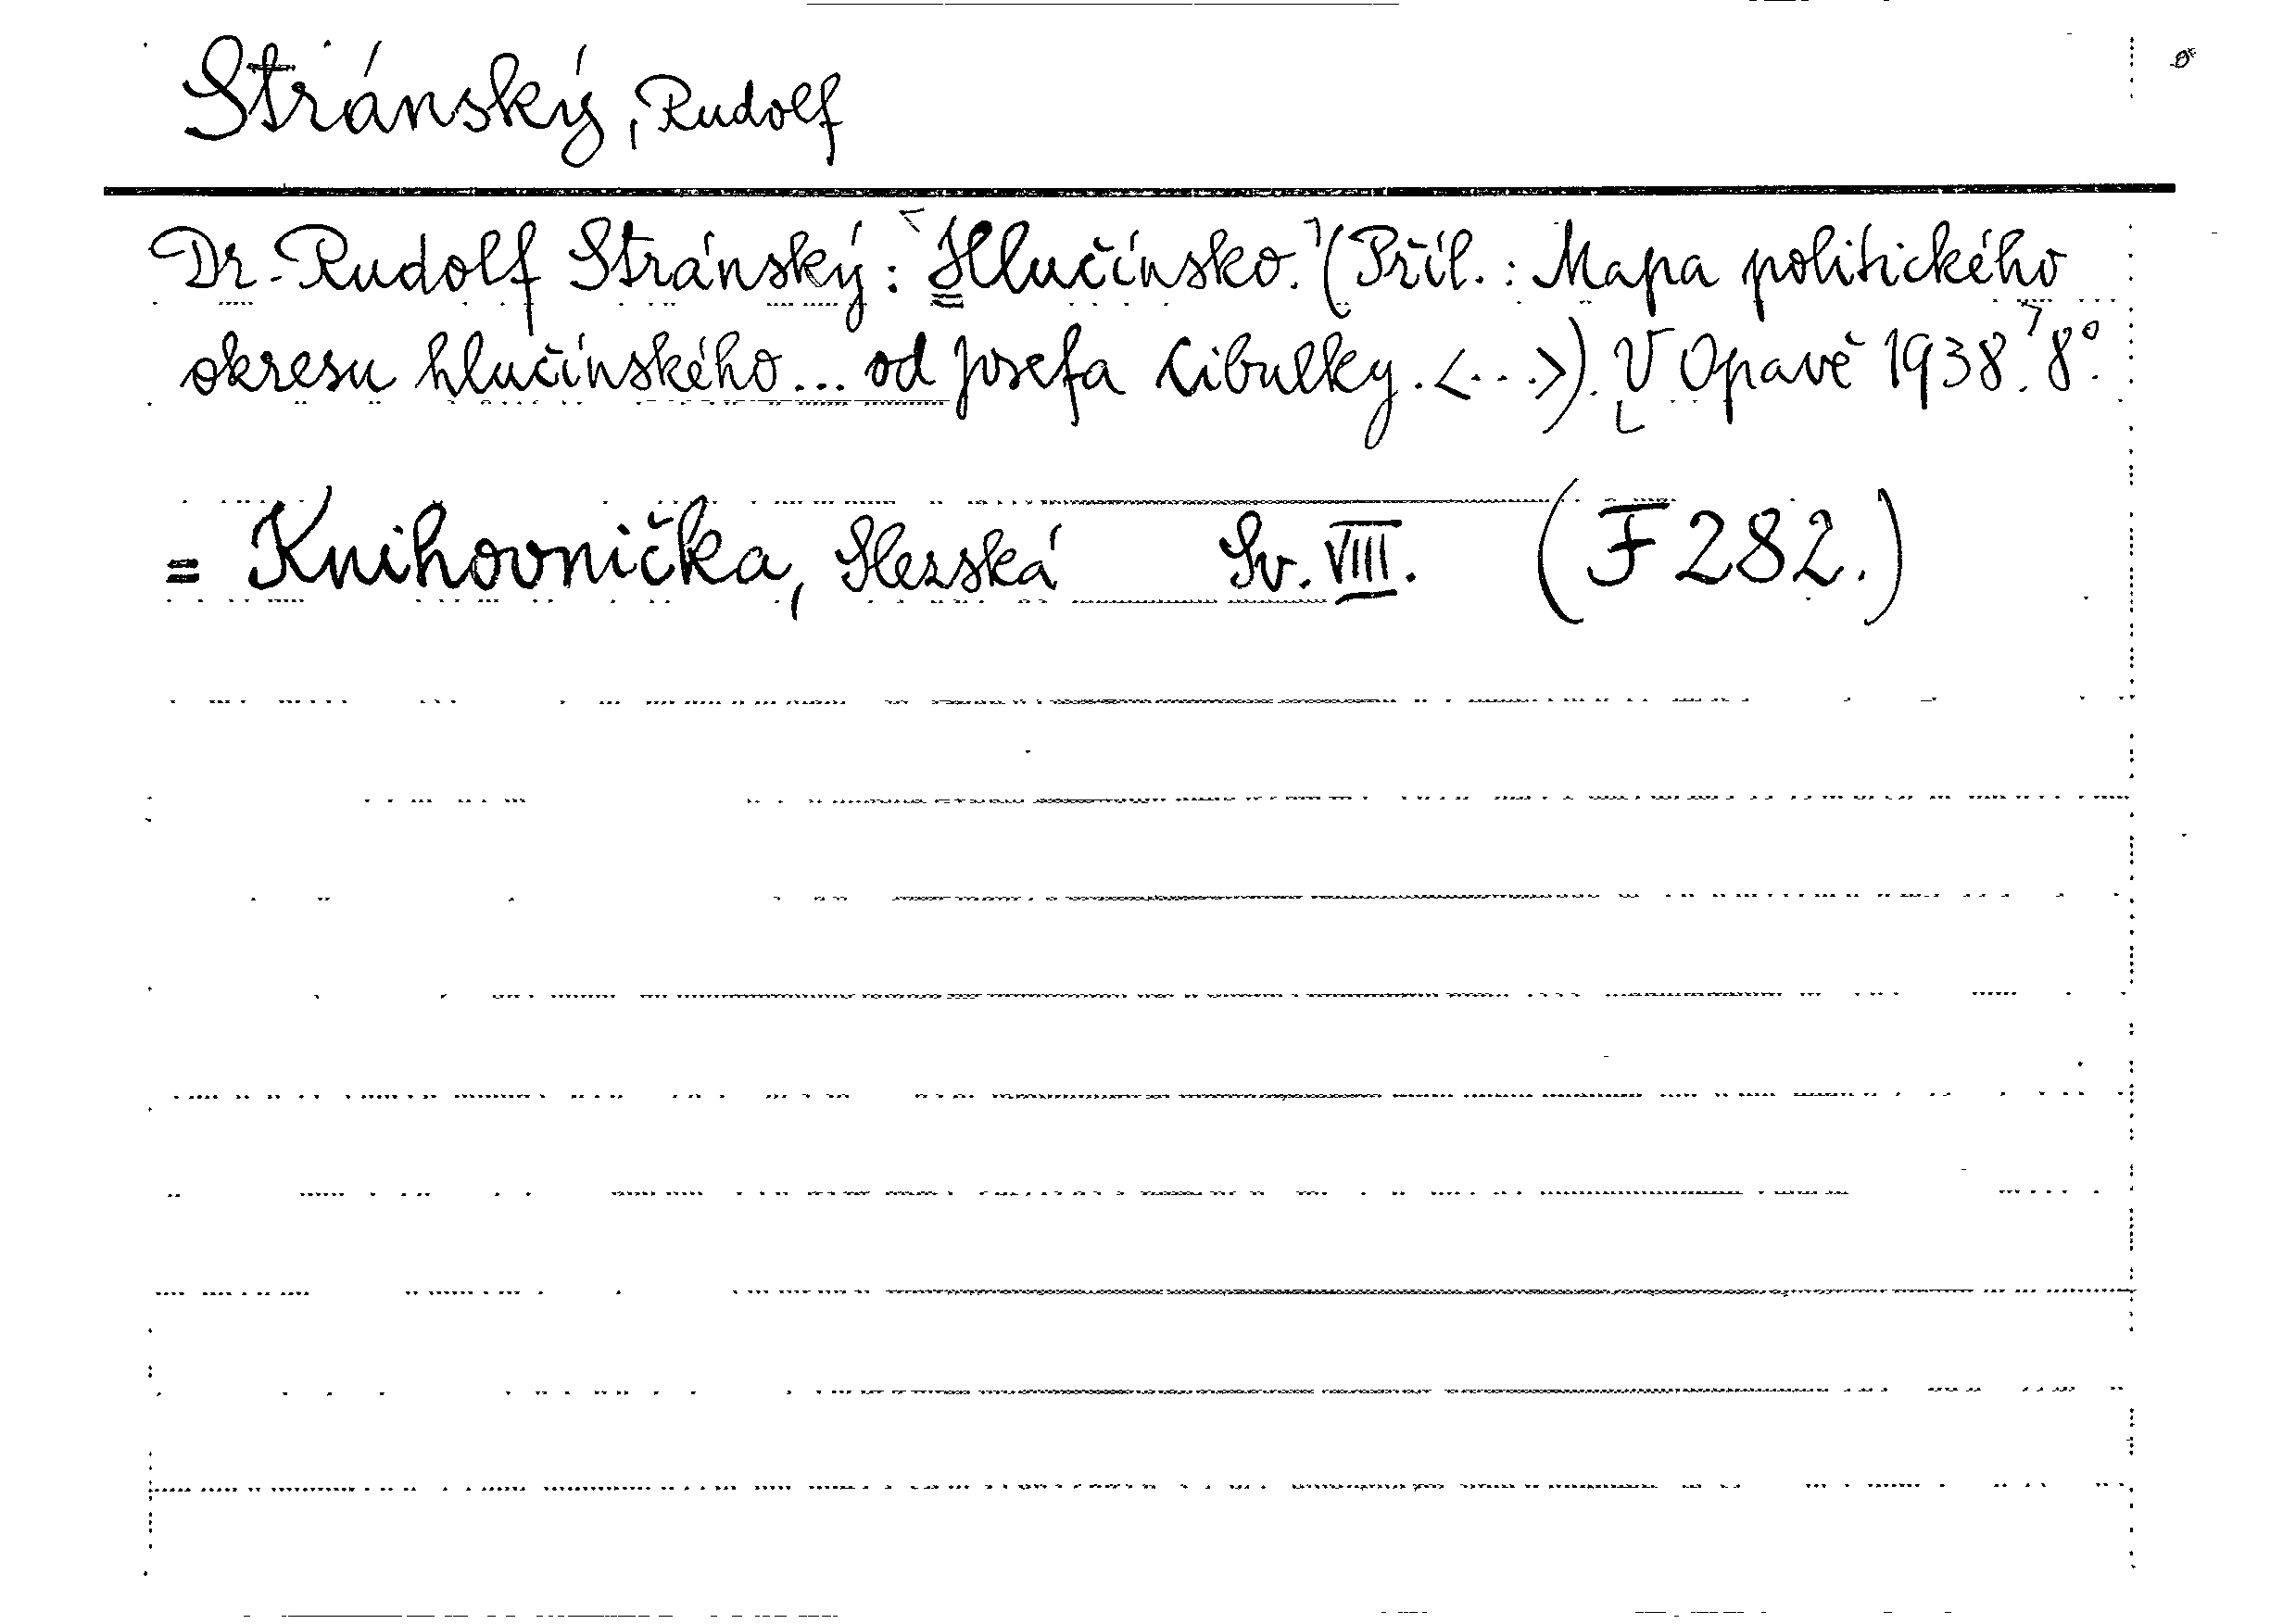 Stránský, Rudolf
Dr. Rudolf Stránský: Hlučínsko. (Příl.: Mapa politického
okresu hlučínského... od Josefa Cibulky. <...>). V Opavě 1938. 8°.
= Knihovnička, Slezská Sv. VIII. (F 282.)